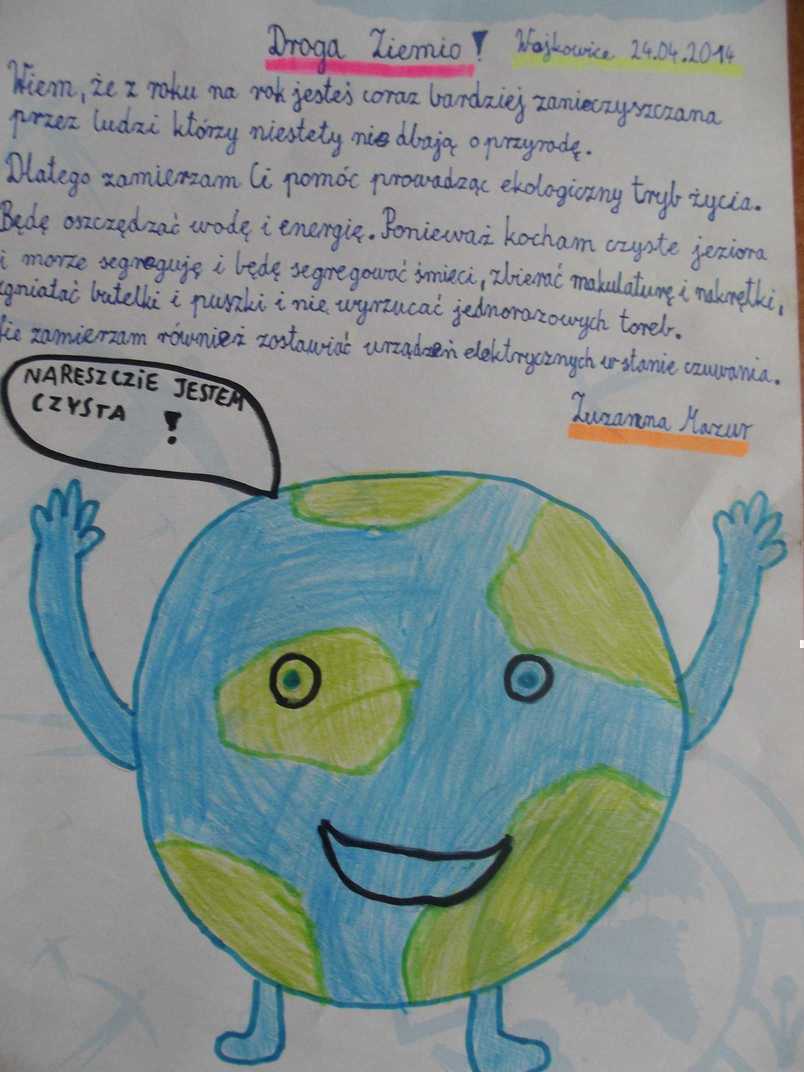 Droga Ziemio! Wojkowice 24.04.2014
Wiem, że z roku na rok jesteś coraz bardziej zanieczyszczana
przez ludzi którzy niestety nie dbają o przyrodę.
Dlatego zamierzam Ci pomóc prowadząc ekologiczny tryb życia.
Będę oszczędzać wodę i energię. Ponieważ kocham czyste jeziora
i morze segreguję i będę segregować śmieci, zbierać makulaturę i nakrętki,
zgniatać butelki i puszki i nie wyrzucać jednorazowych toreb.
Nie zamierzam również zostawiać urządzeń elektrycznych w stanie czuwania.
Zuzanna Mazur
NARESZCZIE JESTEM
CZYSTA !